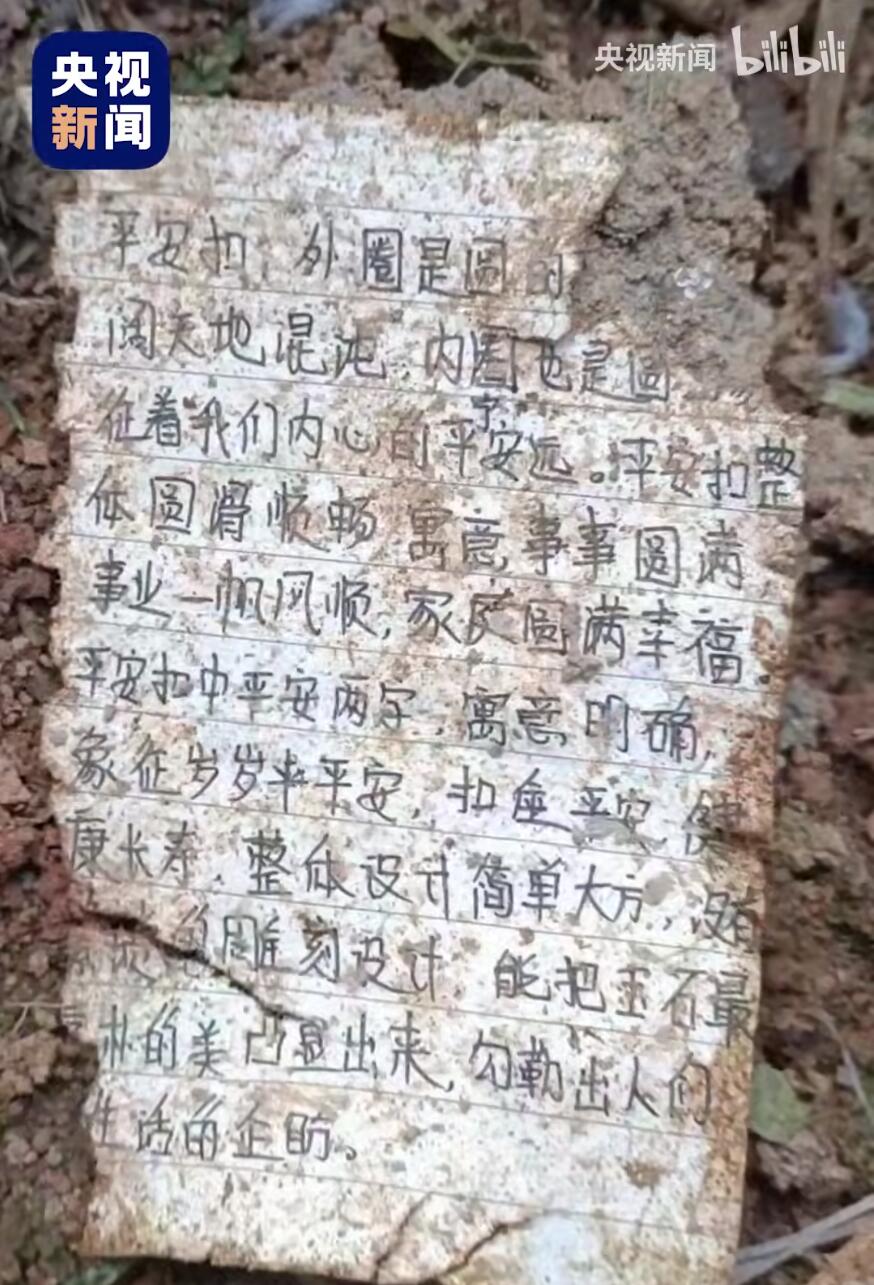 央视
新闻
央视新闻 bilibili
平安扣，外圈是圆的
阔天地混沌，内圈也是圆
征着我们内心的平安宁远。平安扣整
体圆滑顺畅 寓意,事事圆满
事业一帆风顺,家庭圆满幸福.
平安扣中平安两字,寓意明确,
象征岁岁平平安,扣座平安,健
康长寿.整体设计简单大方,没有
雕刻设计 能把玉石最
朴的美凸显出来,勾勒出人们
生活的企盼。